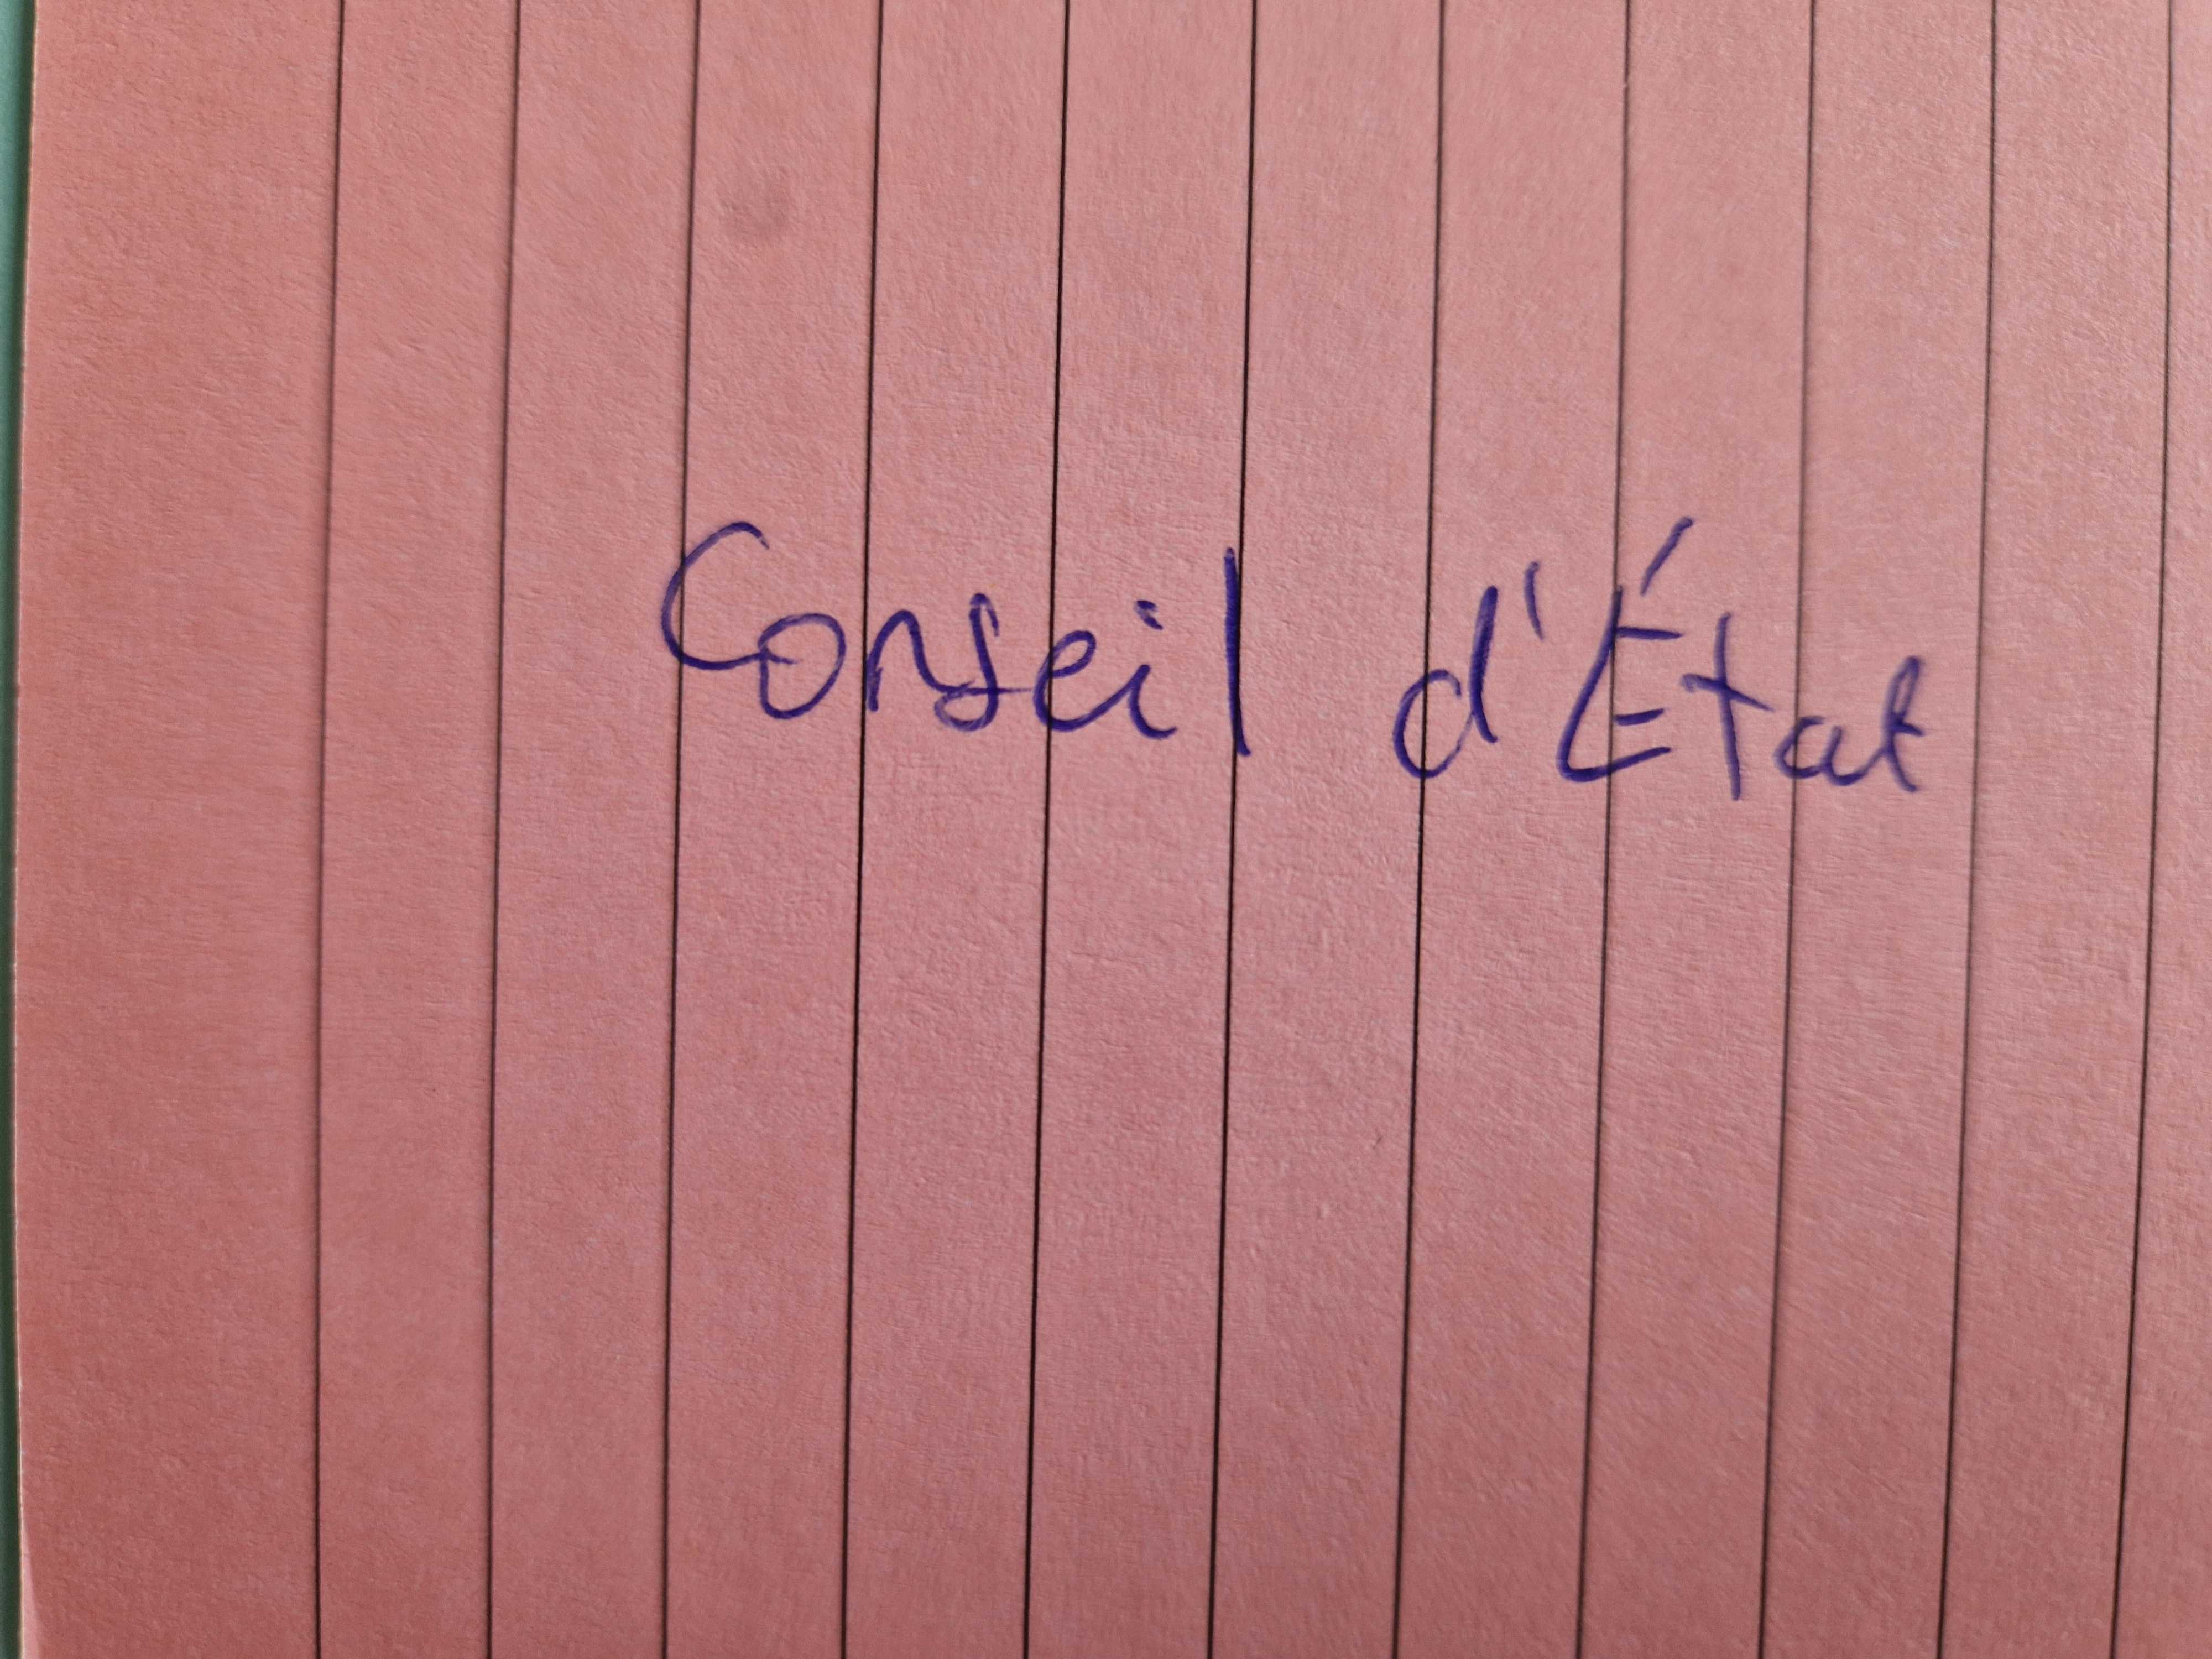 Conseil d'État